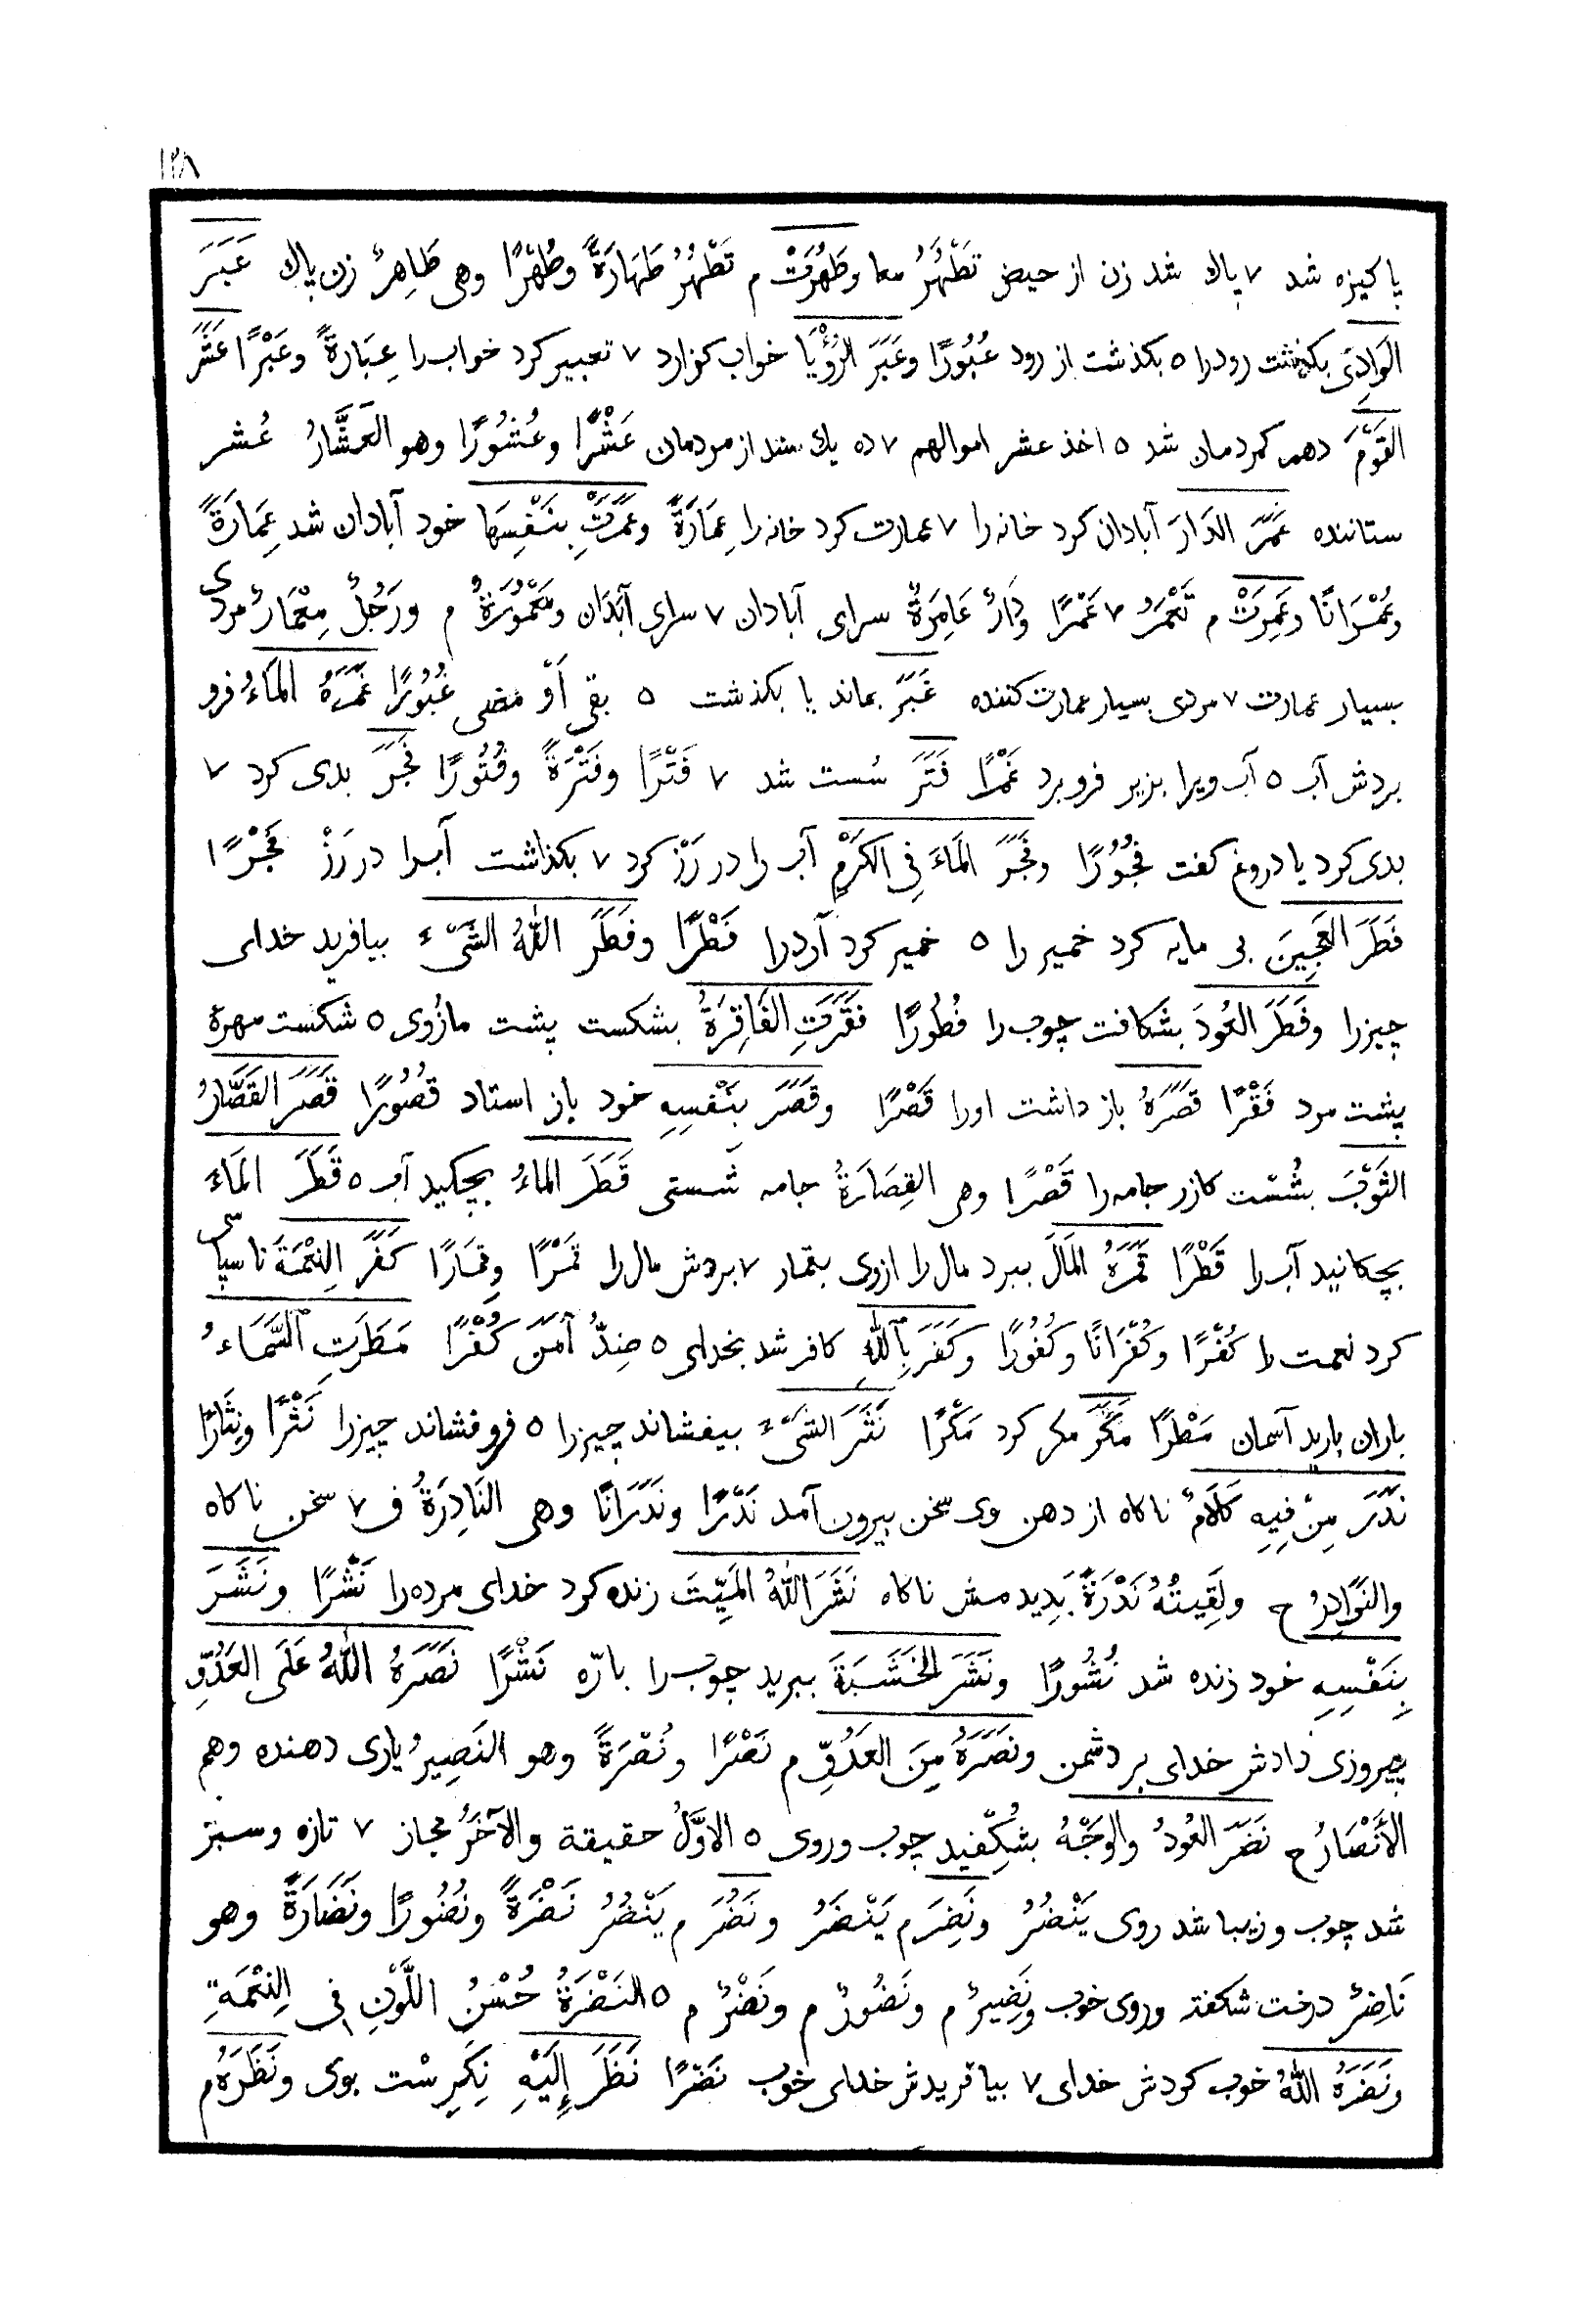 ۱۲۸
پاكيزه شد ٧ پاك شد زن از حيض تَطْهُرُ معا وطَهُرَتْ م تَطْهُرُ طَهَارَةً وطُهْرًا وهى طَاهِرٌ زن پاك عَبَرَ
الوَادِىَ بكذشت رودرا ٥ بكذشت از رود عُبُورًا وعَبَرَ الرُؤْيَا خواب كزارد ٧ تعبير كرد خواب را عِبَارَةً وعَبْرًا عَشَرَ
القَوْمَ دهم كمردمان شد ٥ اخذ عشر اموالهم ٧ ده يك ستد از مردمان عَشْرًا وعُشُورًا وهو العَشَّارُ عُشر
ستاننده عَمَرَ الدَارَ آبادان كرد خانه را ٧ عمارت كرد خانه را عِمَارَةً وعَمَرَتْ بِنَفْسِهَا خود آبادان شد عِمَارَةً
وعُمْرَانًا وعَمِرَتْ م تَعْمَرُ ٧ عَمْرًا ودَارٌ عَامِرَةٌ سراى آبادان ٧ سراى آبَدَان ومَعْمُورَةٌ م ورَجُلٌ مِعْمَارٌ مردى
بسيار عمارت ٧ مردى بسيار عمارت كننده غَبَرَ بماند يا بكذشت ٥ بقى أَوْ مضى غُبُورًا غَمَرَهُ المَاءُ فرو
بردش آب ٥ آب ويرا بزير فرو برد غَمْرًا فَتَرَ سُست شد ٧ فَتْرًا وفَتْرَةً وفُتُورًا فَجَرَ بدى كرد ٧
بدى كرد يا دروغ كفت فُجُورًا وفَجَرَ المَاءَ فِى الكَرْمِ آب را در رَزْ كرد ٧ بكذاشت آبرا در رَزْ فَجْرًا
فَطَرَ العَجِينَ بى مايه كرد خمير را ٥ خمير كرد آردرا فَطْرًا وفَطَرَ اللهُ الشَىْءَ بيافريد خداى
چيزرا وفَطَرَ العُودَ بشكافت چوب را فُطُورًا فَقَرَتِ الفَاقِرَةُ بشكست پشت مازُوى ٥ شكست مهرهٔ
پشت مرد فَقْرًا قَصَرَهُ باز داشت اورا قَصْرًا وقَصَرَ بِنَفْسِهِ خود باز استاد قُصُورًا قَصَرَ القَصَّارُ
الثَوْبَ بشُسْت كازر جامه را قَصْرًا وهى القِصَارَةُ جامه شستى قَطَرَ المَاءُ بچكيد آب ٥ قَطَرَ المَاءَ
بچكانيد آب را قَطْرًا قَمَرَهُ المَالَ ببرد مال را ازوى بقمار ٧ بردش مال را قَمْرًا وقِمَارًا كَفَرَ النِعْمَةَ ناسپاسى
كرد نعمت را كُفْرًا وكُفْرَانًا وكُفُورًا وكَفَرَ بِاللهِ كافر شد بخداى ٥ ضِدُّ آمَنَ كُفْرًا مَطَرَتِ السَّمَاءُ
باران باريد آسمان مَطْرًا مَكَرَ مكر كرد مَكْرًا نَثَرَ الشَىْءَ بيفشاند چيزرا ٥ فرو فشاند چيزرا نَثْرًا ونِثَارًا
نَدَرَ مِنْ فِيهِ كَلَامٌ ناكاه از دهن وى سخن بيرون آمد نَدْرًا ونَدَرَانًا وهى النَادِرَةُ ف ٧ سخن ناكاه
والنَوَادِرُ ج ولَقِيتُهُ نَدْرَةً بَديدمش ناكاه نَشَرَ اللهُ المَيِّتَ زنده كرد خداى مرده را نَشْرًا ونَشَرَ
بِنَفْسِهِ خود زنده شد نُشُورًا ونَشَرَ الخَشَبَةَ ببريد چوب را بارّه نَشْرًا نَصَرَهُ اللهُ عَلَى العَدُوِّ
پيروزى دادش خداى بر دشمن ونَصَرَهُ مِنَ العَدُوِّ م نَصْرًا ونُصْرَةً وهو النَصِيرُ يارى دهنده وهم
الأَنْصَارُ ج نَضَرَ العُودُ والوَجْهُ بشكُفيد چوب وروى ٥ الاوَّلُ حقيقة والآخَرُ مجاز ٧ تازه وسبز
شد چوب وزيبا شد روى يَنْضُرُ ونَضِرَ م يَنْضَرُ ونَضُرَ م يَنْضُرُ نَضْرَةً ونُضُورًا ونَضَارَةً وهو
نَاضِرٌ درخت شكفته وروى خوب ونَضِيرٌ م ونَضُورٌ م ونَضْرٌ م ٥ النَضْرَةُ حُسْنُ اللَّوْنِ فِى النِعْمَةِ
ونَضَرَهُ اللهُ خوب كردش خداى ٧ بيافريدش خداى خوب نَضْرًا نَظَرَ إِلَيْهِ نِكَرِسْت بوى ونَظَرَهُ م